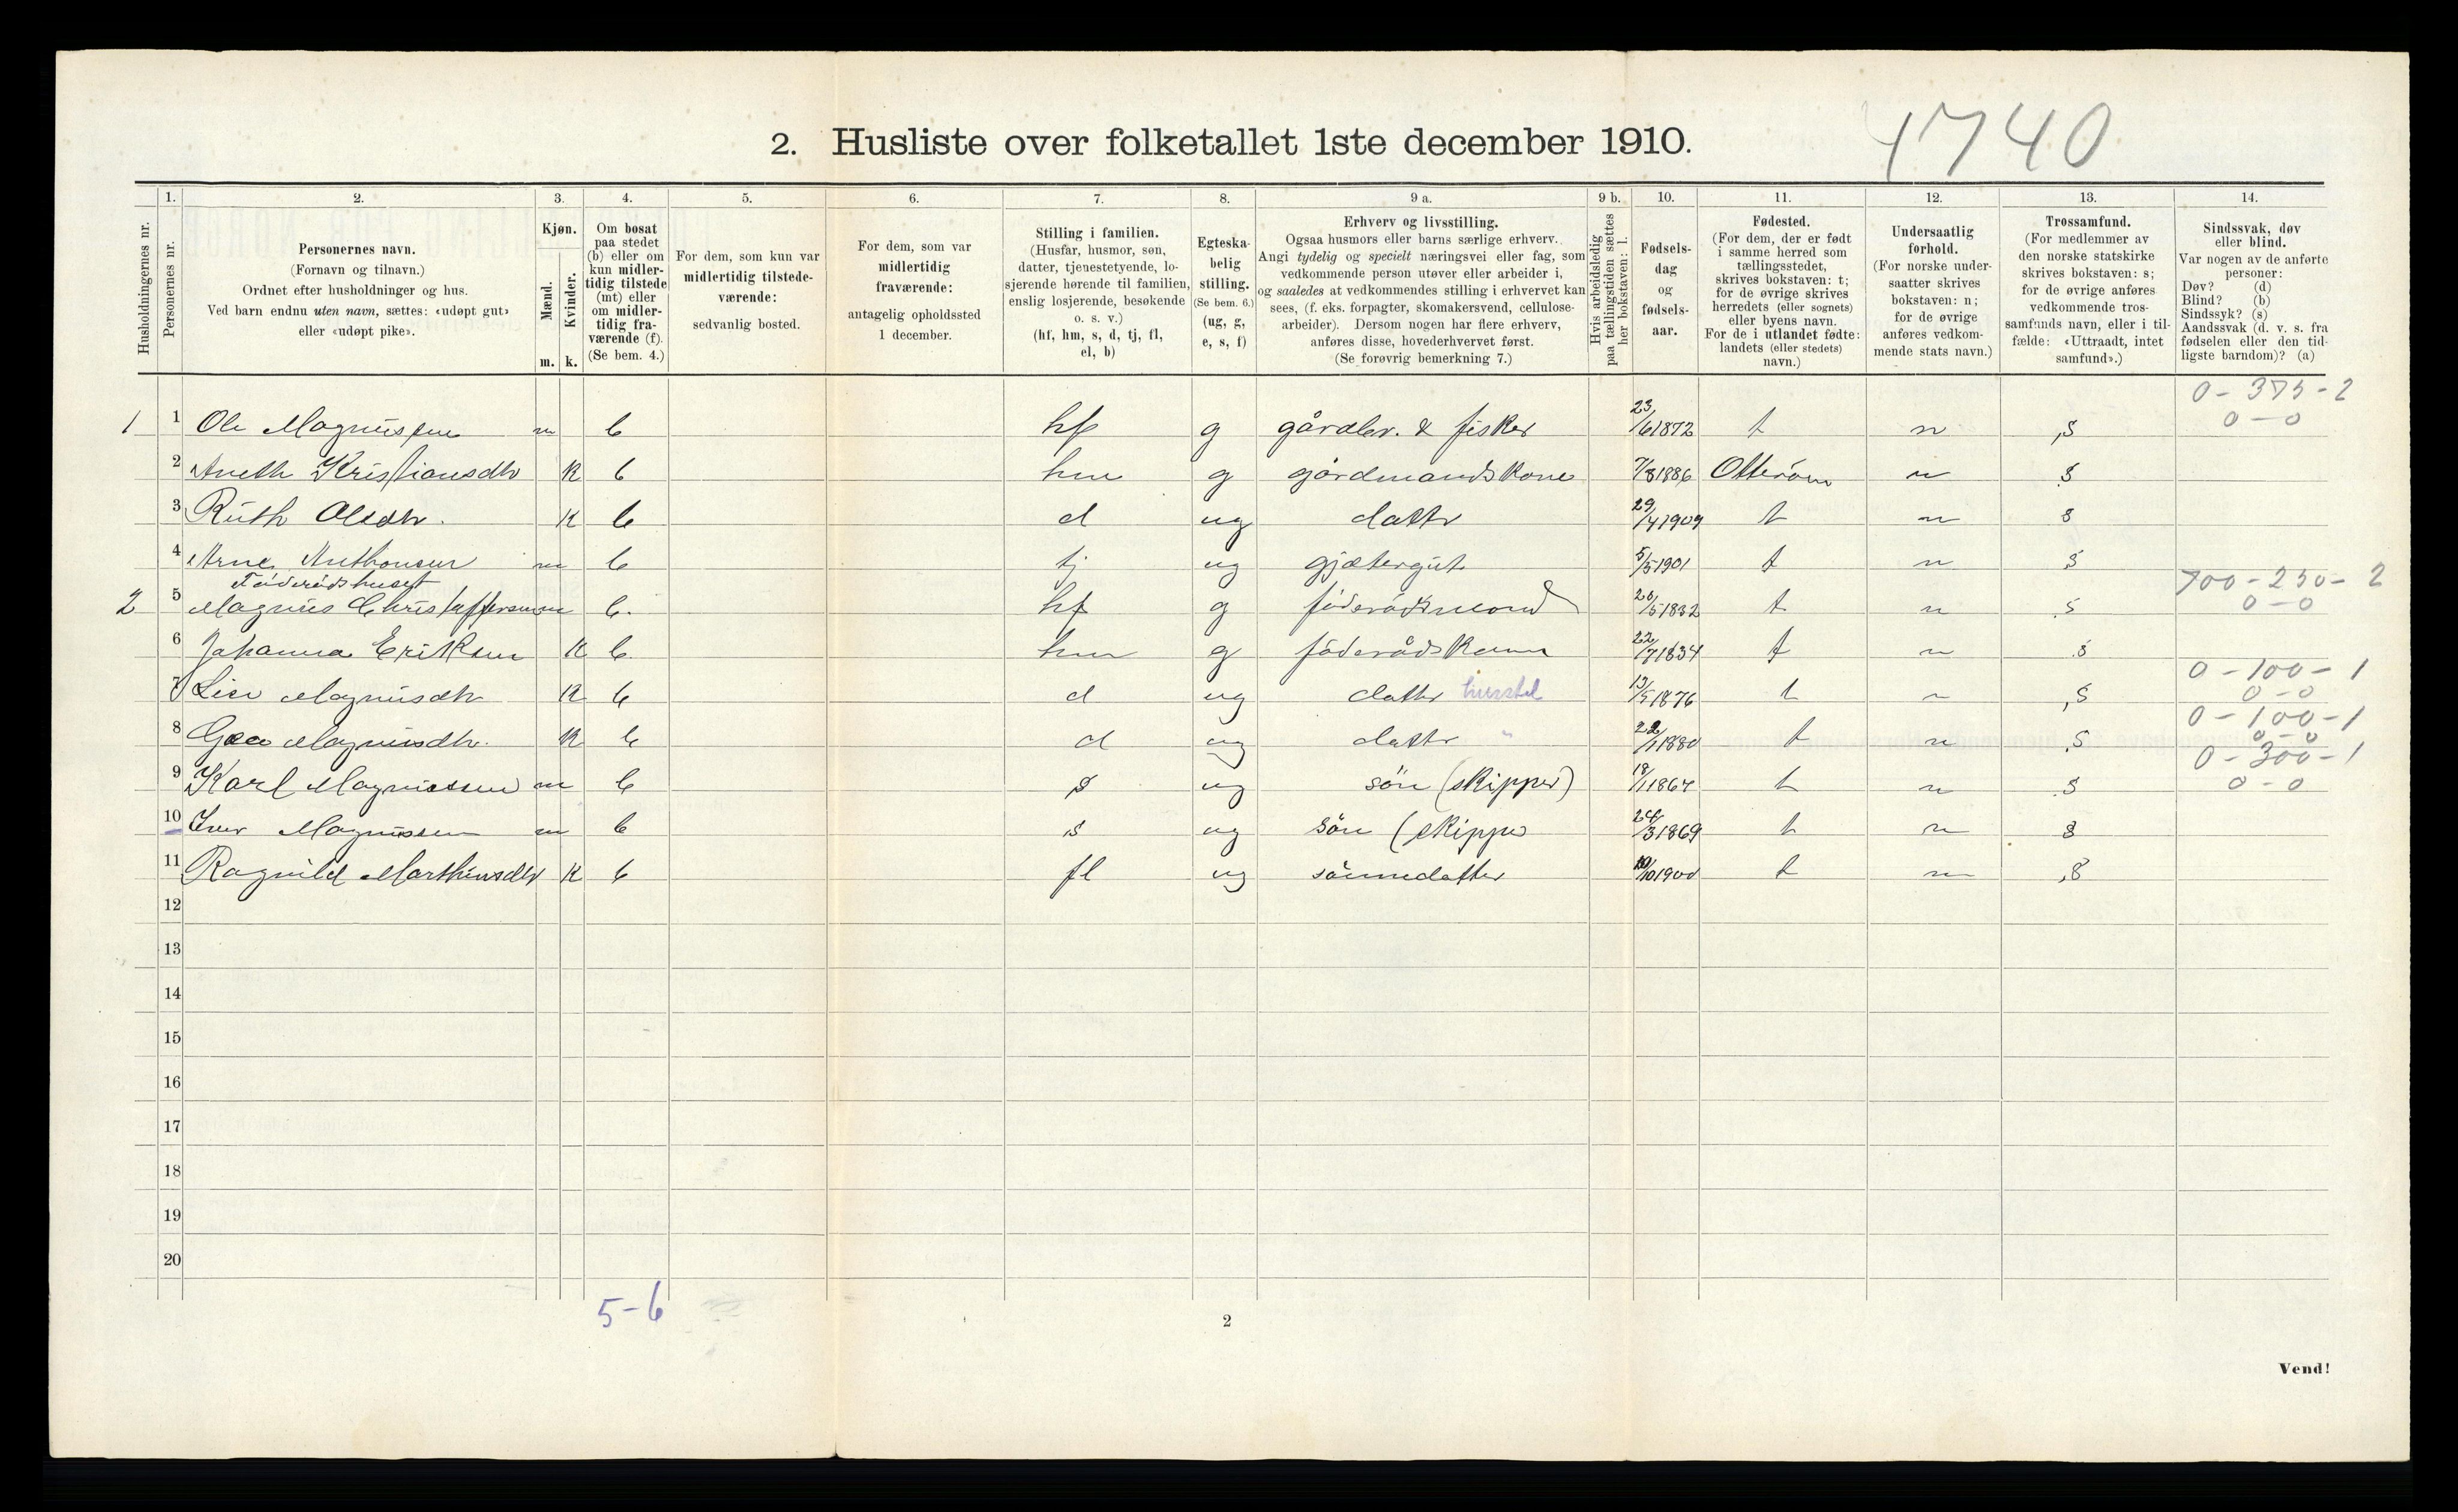 2. Husliste over folketallet 1ste december 1910.
4740
Husholdningernes nr.
1. Personernes nr.
2. Personernes navn. (Fornavn og tilnavn.) Ordnet efter husholdninger og hus. Ved barn endnu uten navn, sættes: «udøpt gut» eller «udøpt pike».
3. Kjøn. Mænd. m. Kvinder. k.
4. Om bosat paa stedet (b) eller om kun midlertidig tilstede (mt) eller om midlertidig fraværende (f). (Se bem. 4.)
5. For dem, som kun var midlertidig tilstedeværende: sedvanlig bosted.
6. For dem, som var midlertidig fraværende: antagelig opholdssted 1 december.
7. Stilling i familien. (Husfar, husmor, søn, datter, tjenestetyende, losjerende hørende til familien, enslig losjerende, besøkende o. s. v.) (hf, hm, s, d, tj, fl, el, b)
8. Egteskabelig stilling. (Se bem. 6.) (ug, g, e, s, f)
9 a. Erhverv og livsstilling. Ogsaa husmors eller barns særlige erhverv. Angi tydelig og specielt næringsvei eller fag, som vedkommende person utøver eller arbeider i, og saaledes at vedkommendes stilling i erhvervet kan sees, (f. eks. forpagter, skomakersvend, cellulosearbeider). Dersom nogen har flere erhverv, anføres disse, hovederhvervet først. (Se forøvrig bemerkning 7.)
9 b. Hvis arbeidsledig paa tællingstiden sættes her bokstaven: l.
10. Fødselsdag og fødselsaar.
11. Fødested. (For dem, der er født i samme herred som tællingsstedet, skrives bokstaven: t; for de øvrige skrives herredets (eller sognets) eller byens navn. For de i utlandet fødte: landets (eller stedets) navn.)
12. Undersaatlig forhold. (For norske undersaatter skrives bokstaven: n; for de øvrige anføres vedkommende stats navn.)
13. Trossamfund. (For medlemmer av den norske statskirke skrives bokstaven: s; for de øvrige anføres vedkommende trossamfunds navn, eller i tilfælde: «Uttraadt, intet samfund».)
14. Sindssvak, døv eller blind. Var nogen av de anførte personer: Døv? (d) Blind? (b) Sindssyk? (s) Aandssvak (d. v. s. fra fødselen eller den tidligste barndom)? (a)
0-375-2
1 1 Ole Magnussen m b hf g gårdbr. & fisker 23/6 1872 t n s 0-0
2 Aneth Kristiansdtr k b hm g gårdmandskone 7/8 1886 Otterøen n s
3 Ruth Olsdtr. k b d ug datter 29/4 1909 t n s
4 Arne Anthonsen m b tj ug gjætergut 5/5 1901 t n s
Föderådshuset 700-250-2
2 5 Magnus Christoffersen m b. hf g föderådsmand 20/5 1832 t n s 0-0
6 Johanna Eriksen k b hm g föderådskone 22/7 1834 t n s
0-100-1
7 Lise Magnusdtr k b d ug datter husstel 13/5 1876 t n s 0-0
0-100-1
8 Magnusdtr. k b d ug datter " 22/1 1880 t n s 0-0
0-300-1
9 Karl Magnussen m b s ug sön (skipper) 18/1 1867 t n s 0-0
10 Iver Magnussen m b s ug sön (skipper 24/3 1869 t n s
11 Ragnild Marthinsdtr k b fl ug sönnedatter 10/10 1900 t n s
12
13
14
15
16
17
18
19
20
5-6
2
Vend!